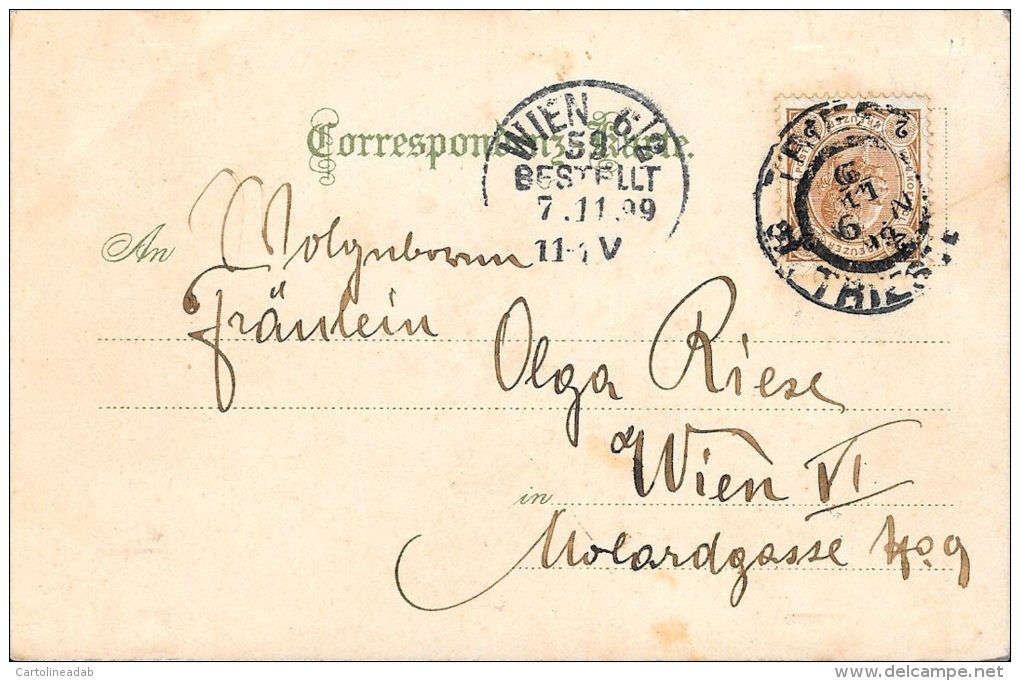 Correspondenz-Karte.
WIEN 6/2
S9
BESTELLT
7.11.99
11- V
TRIEST
TRIEST
2
An Wolgeboren
Fräulein
Olga Riese
Wien VI
in
Molardgasse No 9
Cartolineadab
www.delcampe.net